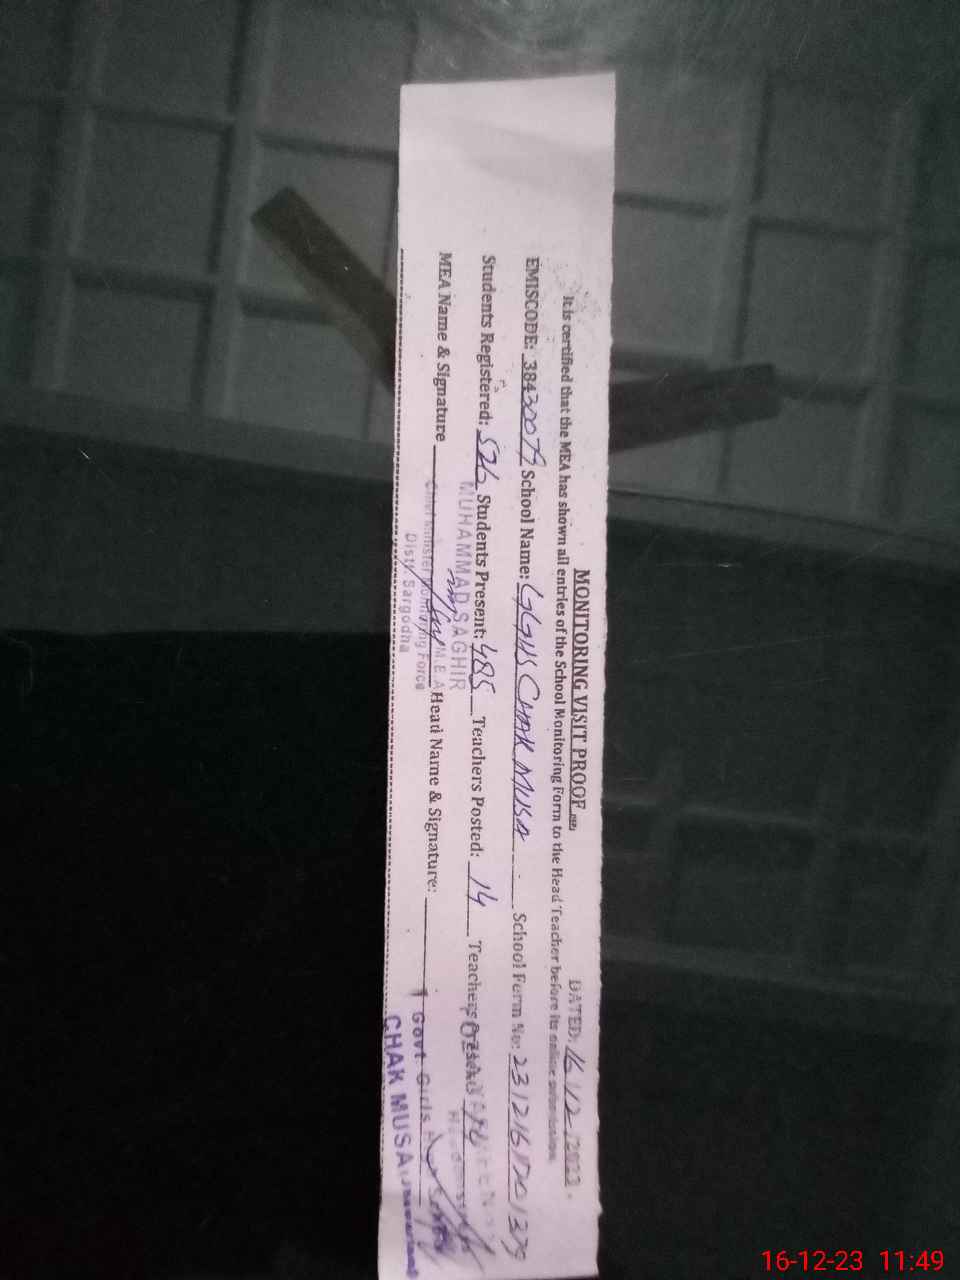 MONITORING VISIT PROOF
DATED: 16/12/2023
It is certified that the MEA has shown all entries of the School Monitoring Form to the Head Teacher before its online submission.
EMISCODE: 38430079 School Name: GGHS CHAK MUSA School Form No: 2312161701379
Students Registered: 526 Students Present: 485 Teachers Posted: 14 Teachers
MUHAMMAD SAGHIR
MEA Name & Signature M.E.A Head Name & Signature:
Chief Minister Monitoring Force
Distt Sargodha
Govt Girls
CHAK MUSA
16-12-23 11:49